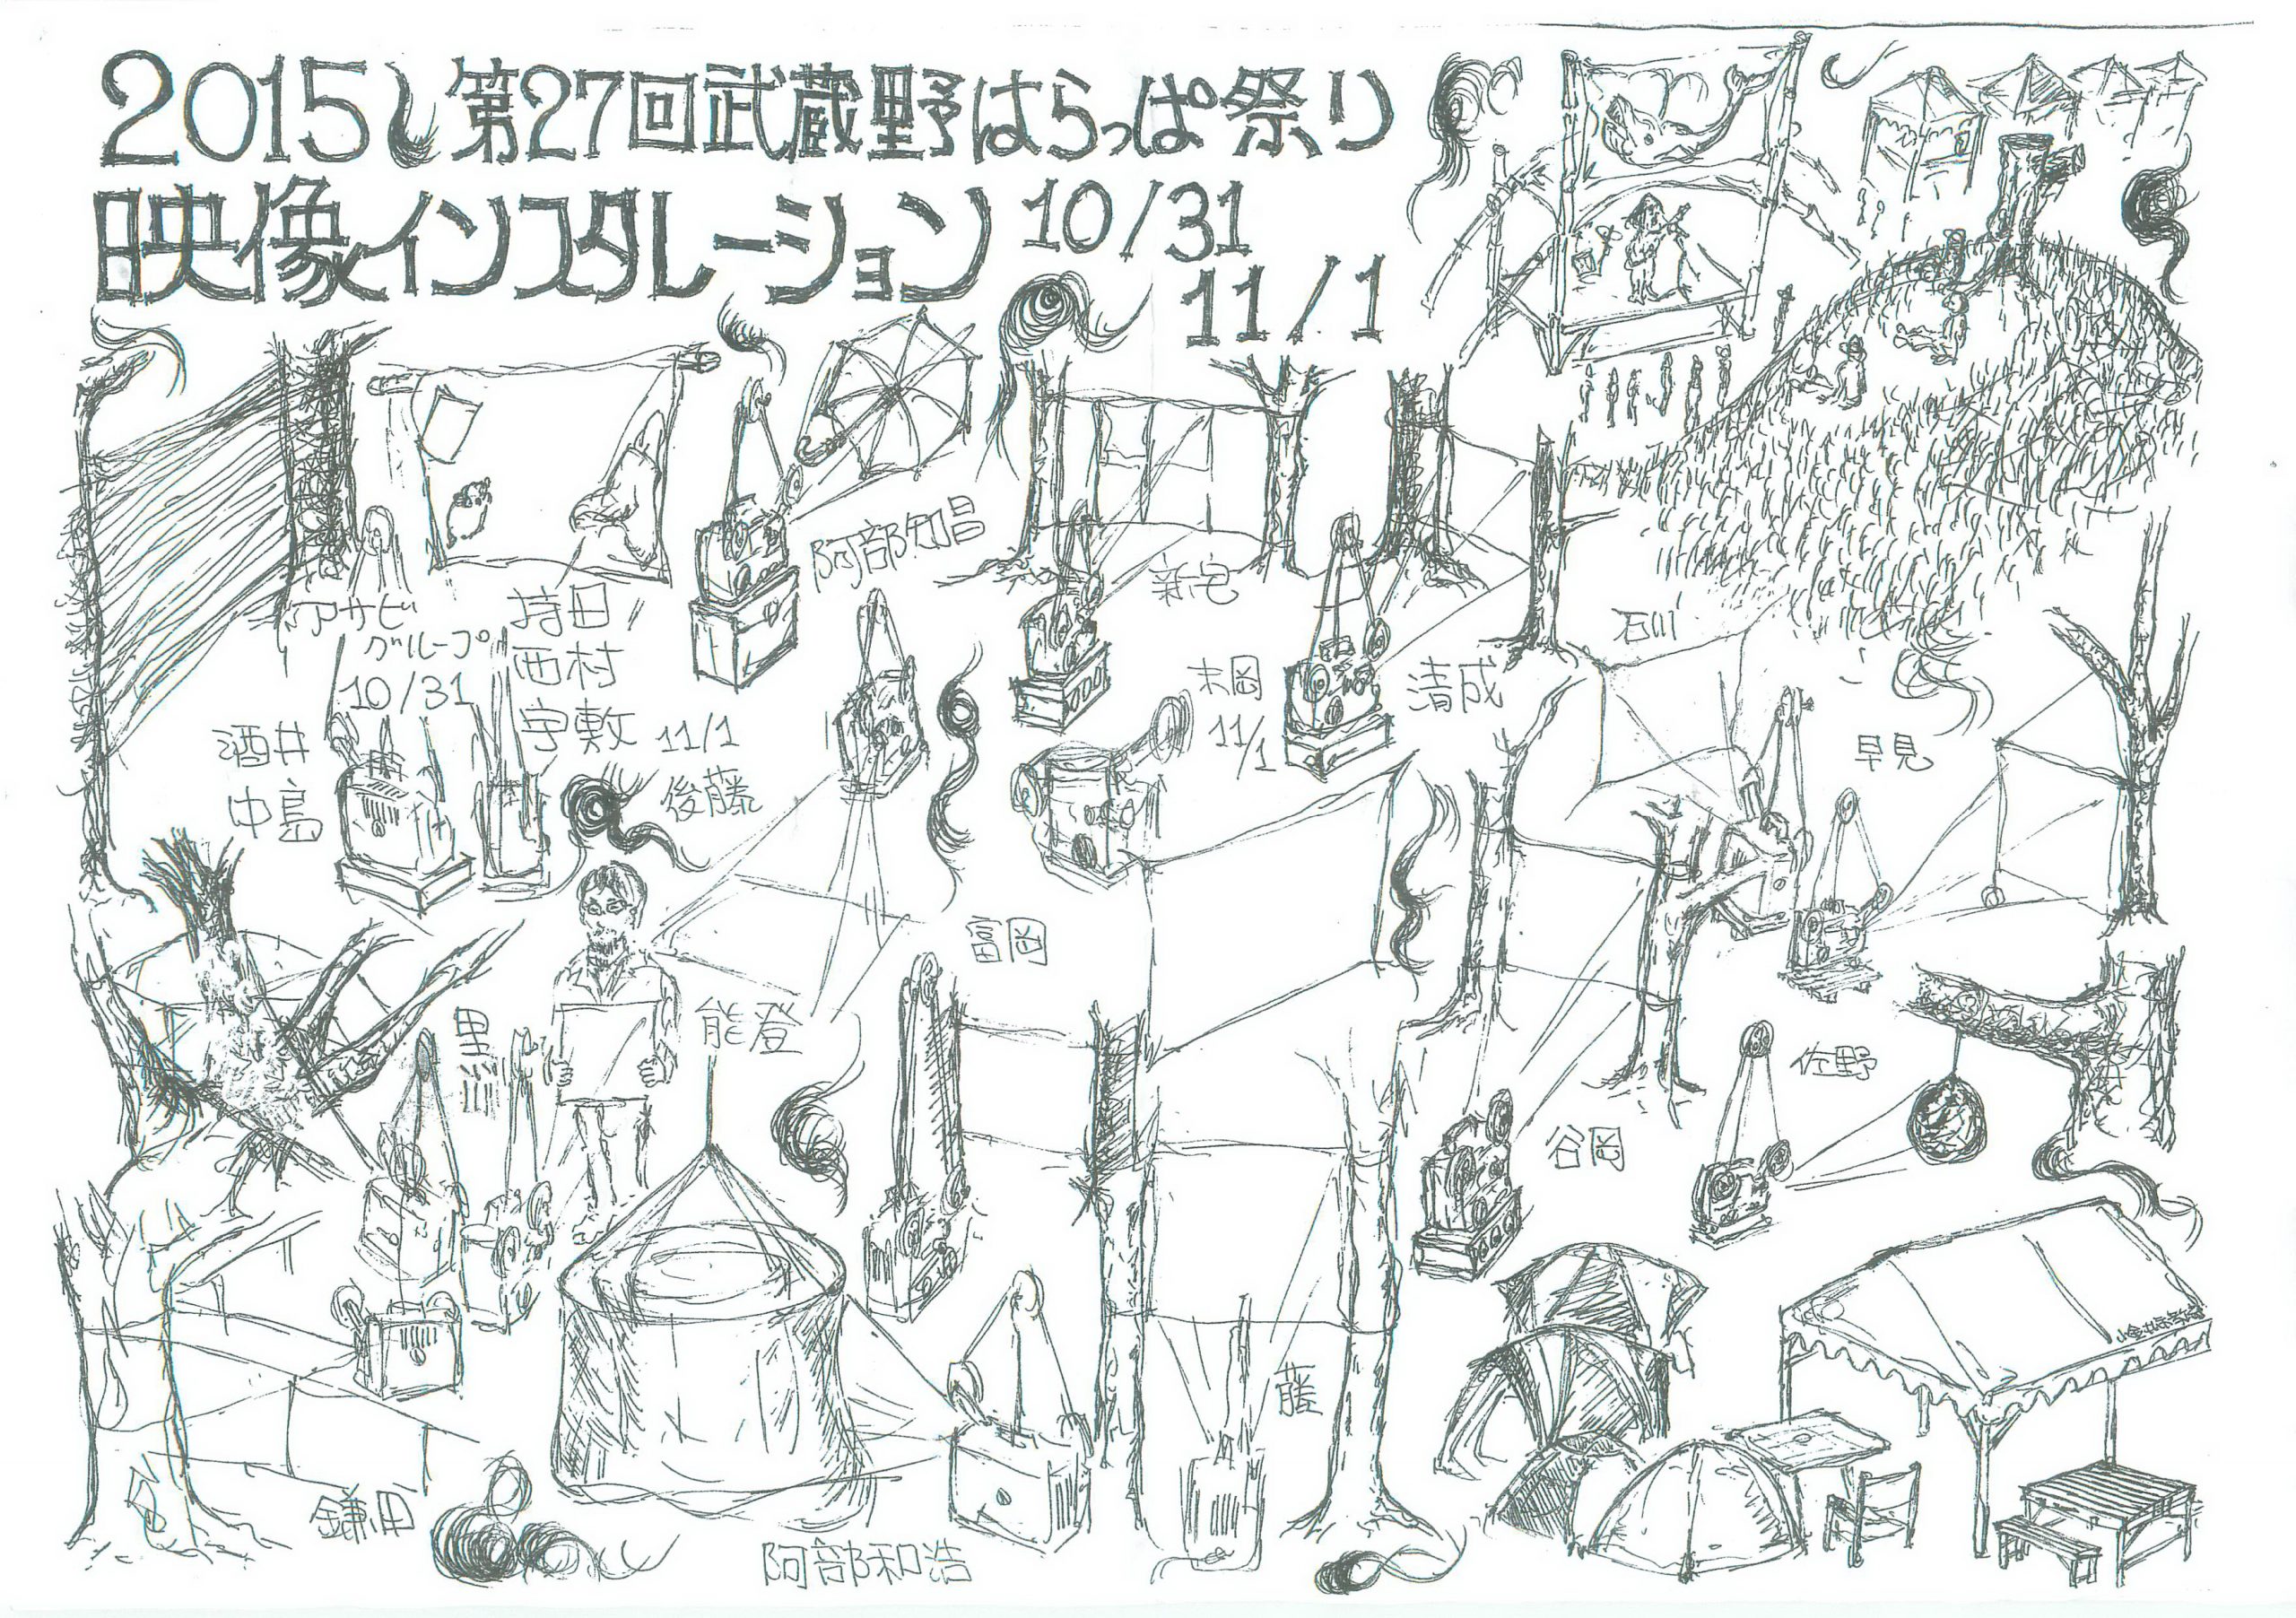 2015 第27回武蔵野はらっぱ祭り
映像インスタレーション 10/31
11/1
阿部知昌
新宅
アサビ
グループ
10/31
持田
西村
宇敷 11/1
後藤
酒井
中島
末岡
11/1
清成
石川
早見
富岡
能登
黒川
佐野
谷岡
藤
鎌田
阿部和浩